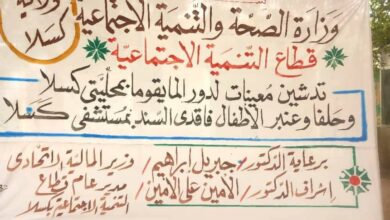 ولاية
كسلا
وزارة الصحة والتنمية الاجتماعية
قطاع التنمية الاجتماعية
تدشين معينات لدور المايقوما بمحليتي كسلا
وحلفا وعنبر الأطفال فاقدى السند بمستشفى كسلا
برعاية الدكتور/ جبريل ابراهيم/ وزير المالية الاتحادى
إشراف الدكتور/ الأمين علي الأمين/ مدير عام قطاع
التنمية الاجتماعية بكسلا